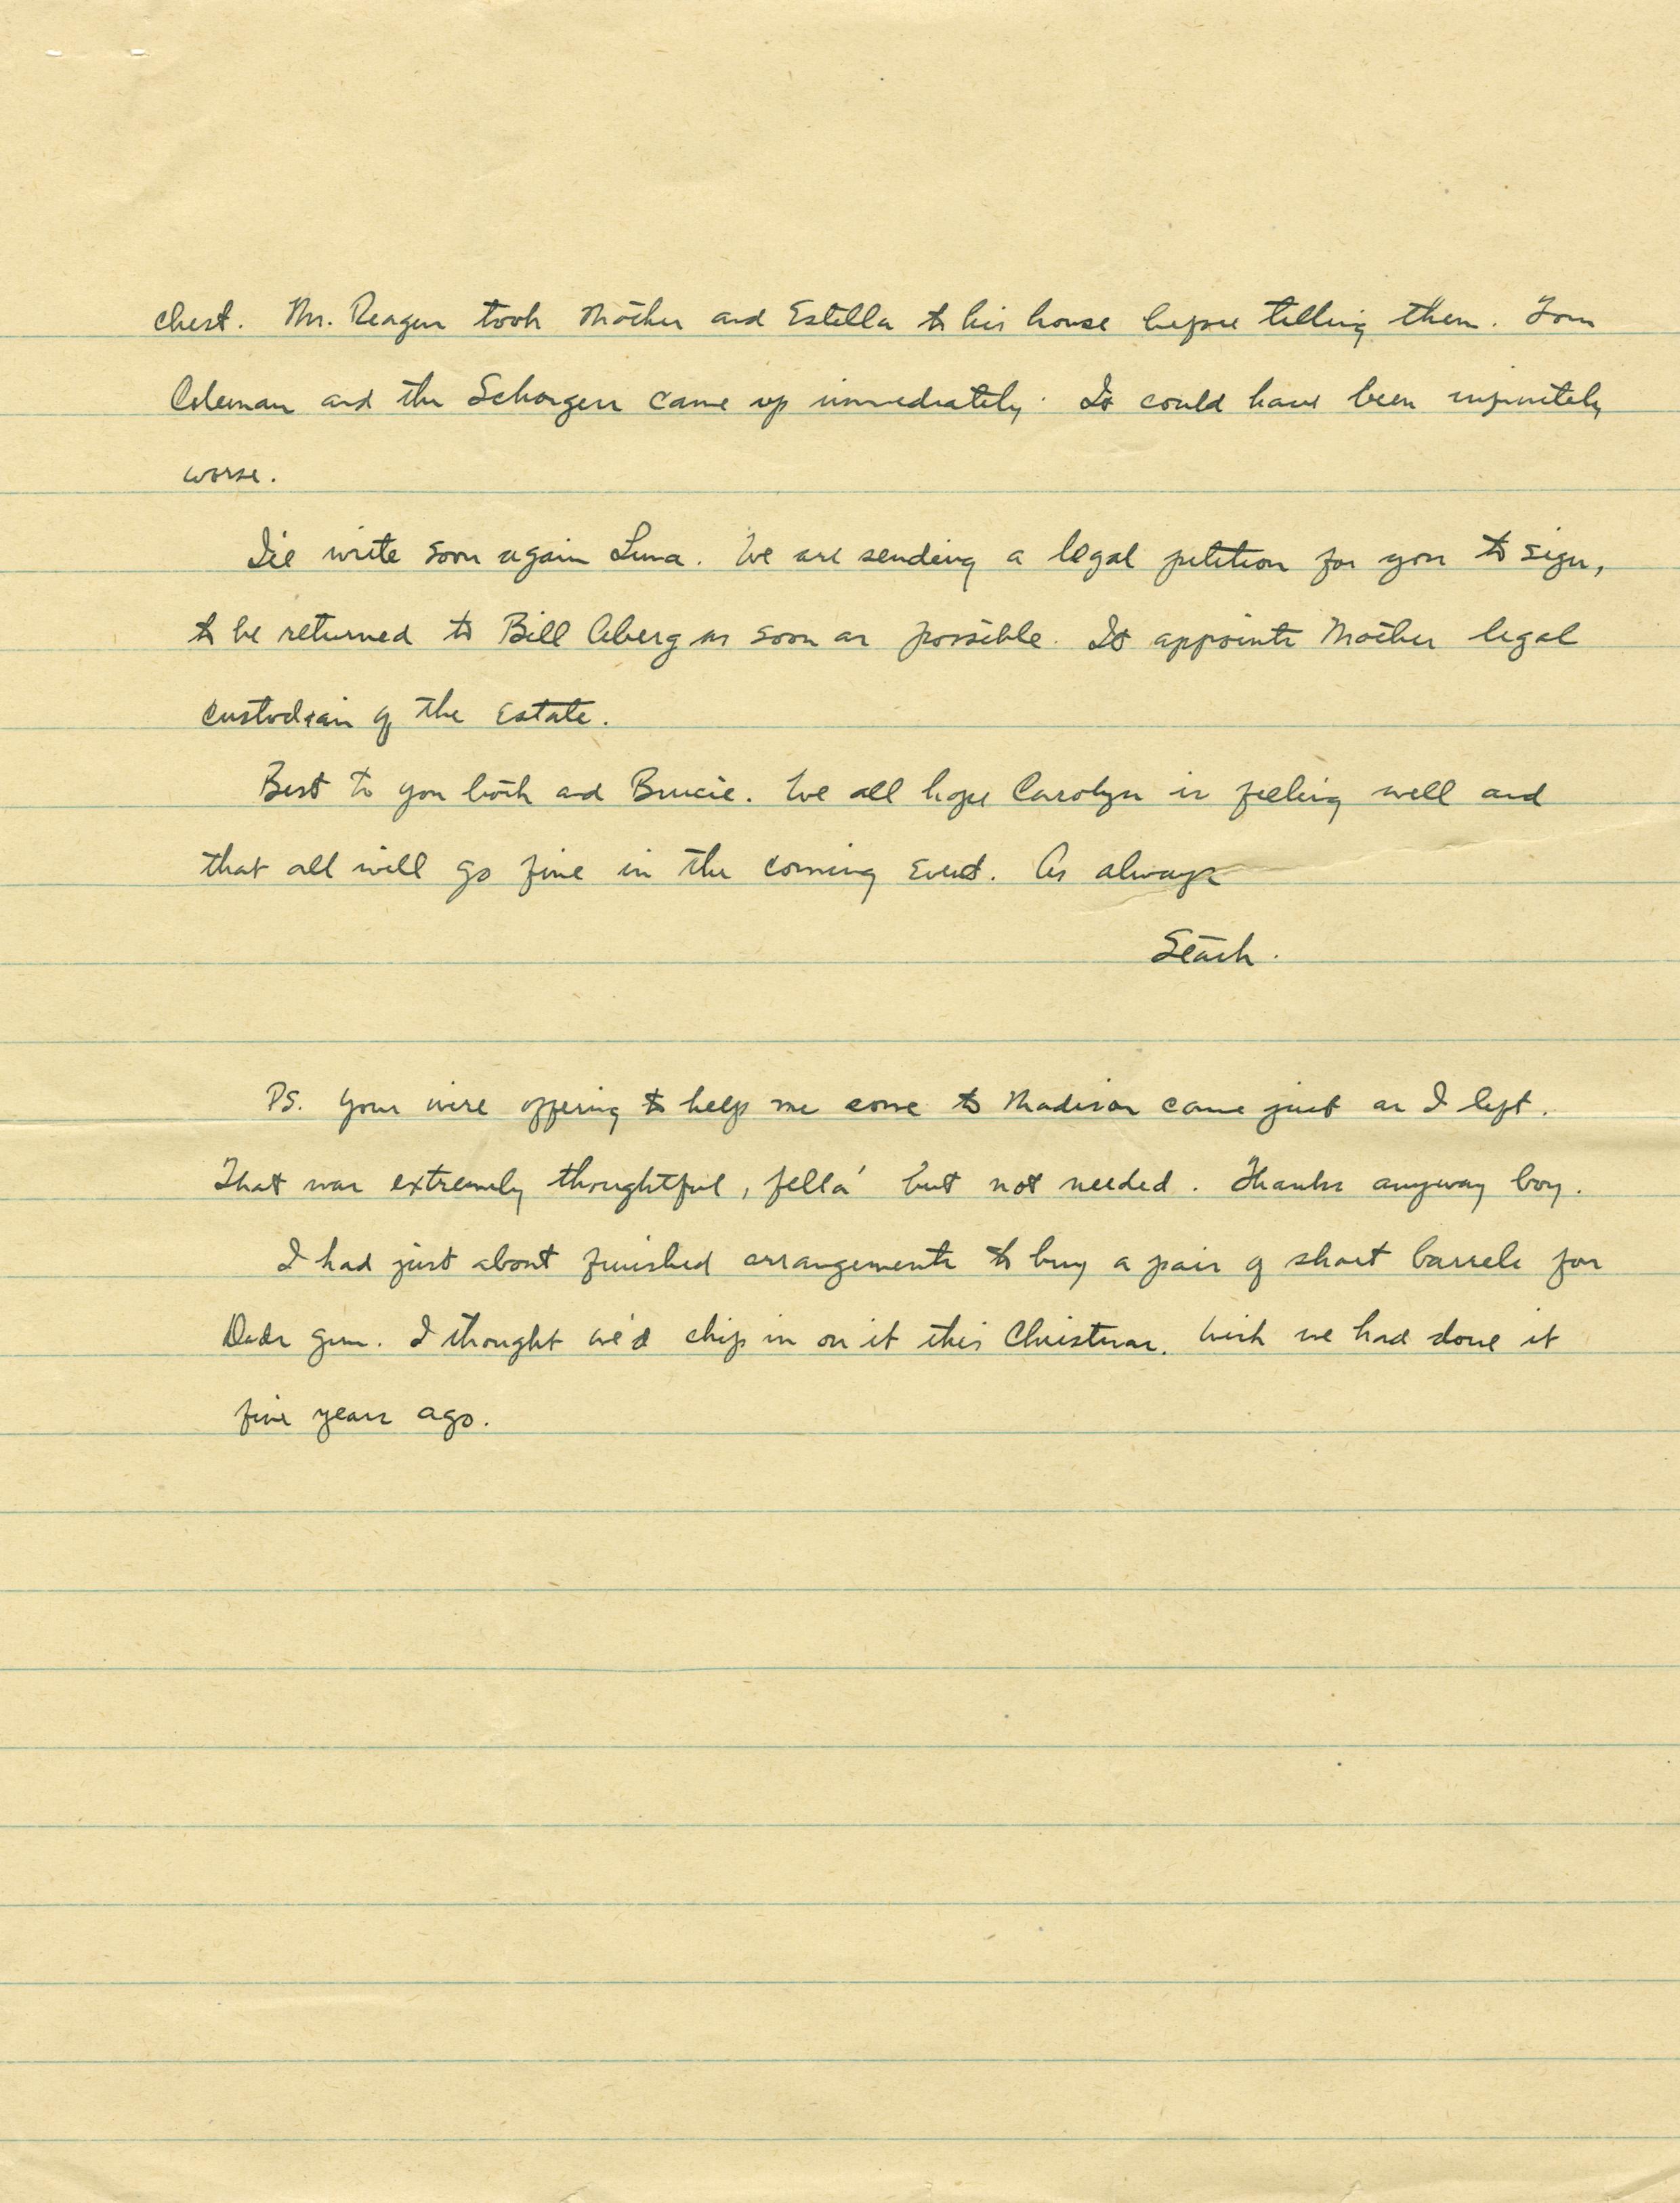 chest. Mr. Reagan took Mother and Estella to his house before telling them. Tom
Coleman and the Schorgers came up immediately. It could have been infinitely
worse.
I'll write soon again Luna. We are sending a legal petition for you to sign,
to be returned to Bill Aberg as soon as possible. It appoints Mother legal
custodian of the Estate.
Best to you both and Brucie. We all hope Carolyn is feeling well and
that all will go fine in the coming event. As always
Stark.
PS. Your wire offering to help me come to Madison came just as I left.
That was extremely thoughtful, fella' but not needed. Thanks anyway boy.
I had just about finished arrangements to buy a pair of short barrels for
Dads gun. I thought we'd chip in on it this Christmas. Wish we had done it
five years ago.